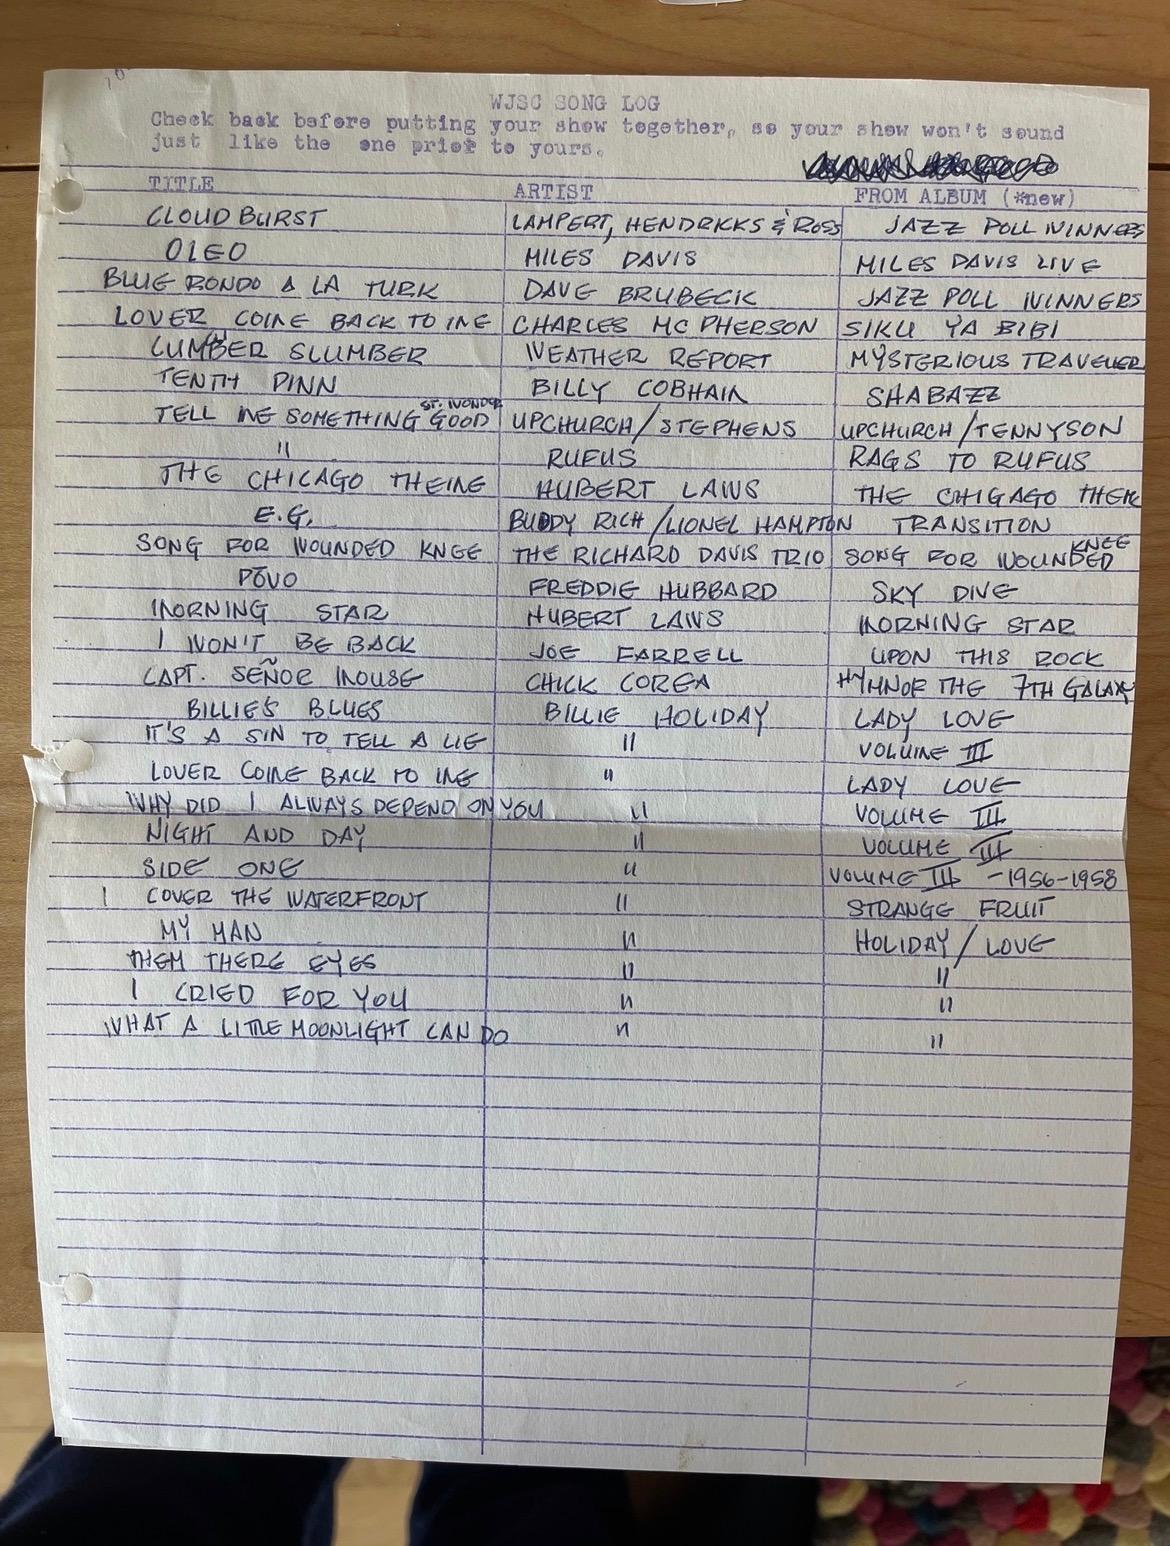 WJSC SONG LOG
Check back before putting your show together, so your show won't sound
just like the one prior to yours.
TITLE ARTIST FROM ALBUM (*new)
CLOUDBURST LAMPERT, HENDRICKS & ROSS JAZZ POLL WINNERS
OLEO MILES DAVIS MILES DAVIS LIVE
BLUE RONDO A LA TURK DAVE BRUBECK JAZZ POLL WINNERS
LOVER COME BACK TO ME CHARLES MCPHERSON SIKU YA BIBI
CUMBER SLUMBER WEATHER REPORT MYSTERIOUS TRAVELER
TENTH PINN BILLY COBHAM SHABAZZ
TELL ME SOMETHING GOOD ST. WONDER UPCHURCH/STEPHENS UPCHURCH/TENNYSON
" RUFUS RAGS TO RUFUS
THE CHICAGO THEME HUBERT LAWS THE CHIGAGO THEM
E.G. BUDDY RICH/LIONEL HAMPTON TRANSITION
SONG FOR WOUNDED KNEE THE RICHARD DAVIS TRIO SONG FOR WOUNDED KNEE
POVO FREDDIE HUBBARD SKY DIVE
MORNING STAR HUBERT LAWS MORNING STAR
I WON'T BE BACK JOE FARRELL UPON THIS ROCK
CAPT. SEÑOR MOUSE CHICK COREA HYMN OF THE 7TH GALAXY
BILLIE'S BLUES BILLIE HOLIDAY LADY LOVE
IT'S A SIN TO TELL A LIE " VOLUME III
LOVER COME BACK TO ME " LADY LOVE
WHY DID I ALWAYS DEPEND ON YOU " VOLUME III
NIGHT AND DAY " VOLUME III
SIDE ONE " VOLUME III - 1956-1958
I COVER THE WATERFRONT " STRANGE FRUIT
MY MAN " HOLIDAY/LOVE
THEM THERE EYES " "
I CRIED FOR YOU " "
WHAT A LITTLE MOONLIGHT CAN DO " "